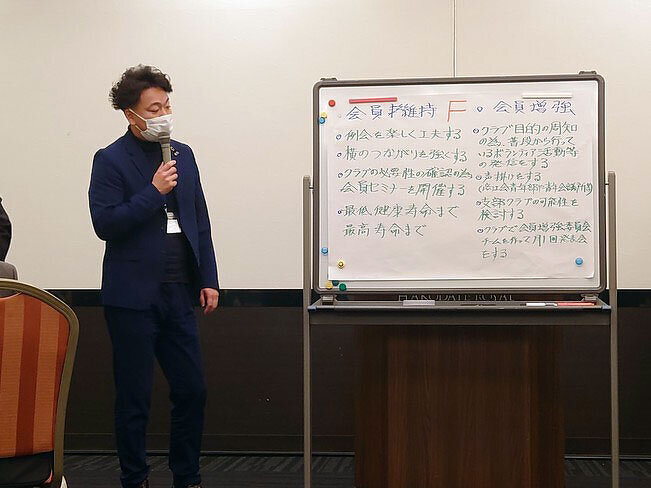 会員維持
F
。会員増強
○例会を楽しく工夫する
○横のつながりを強くする
○クラブの必要性の確認の為
会員セミナーを開催する
○最低、健康寿命まで
最高寿命まで
○クラブ目的の周知
の為、普段から行って
いるボランティア活動等
の発信をする
○声掛けをする
○支部クラブの可能性を
検討する
○クラブで会員増強委員会
チームを作って月1回発表会
をする
HAKODATE ROYAL